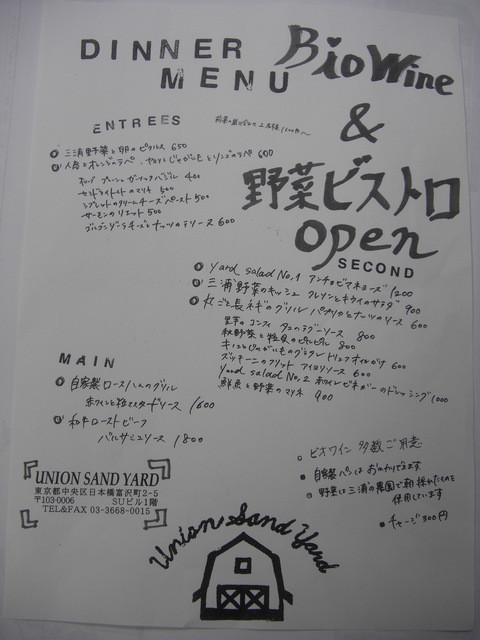 DINNER MENU
Bio Wine
&
野菜ビストロ
open
ENTREES
三浦野菜と卵のピクルス 650
人参とオレンジのラペ 600
オリーブ 400
セミドライトマトのマリネ 500
クリームチーズペースト 500
サーモンのリエット 500
ゴルゴンゾーラチーズとナッツのテリーヌ 600
SECOND
Yard salad No,1 アンチョビマヨネーズ 1200
三浦野菜のキッシュ クレソンとキウイのサラダ 900
丸ごと長ネギのグリル パプリカとナーツのソース 600
里芋のコンフィ タコのラグーソース 800
秋野菜と 800
キノコとじゃがいものグラタン トリュフオイルがけ 600
ズッキーニのフリット アイヨリソース 600
Yard salad No,2 赤ワインビネガーのドレッシング 1000
鮮魚と野菜のマリネ 900
MAIN
自家製ロースハムのグリル
赤ワインと粒マスタードソース 1600
和牛ローストビーフ
バルサミコソース 1800
ビオワイン 多数ご用意
自家製パンはおかわりできます
野菜は三浦の農園で朝採れたものを
使用しています
チャージ 300円
UNION SAND YARD
東京都中央区日本橋富沢町2-5
〒103-0006 SUビル1階
TEL&FAX 03-3668-0015
Union Sand Yard